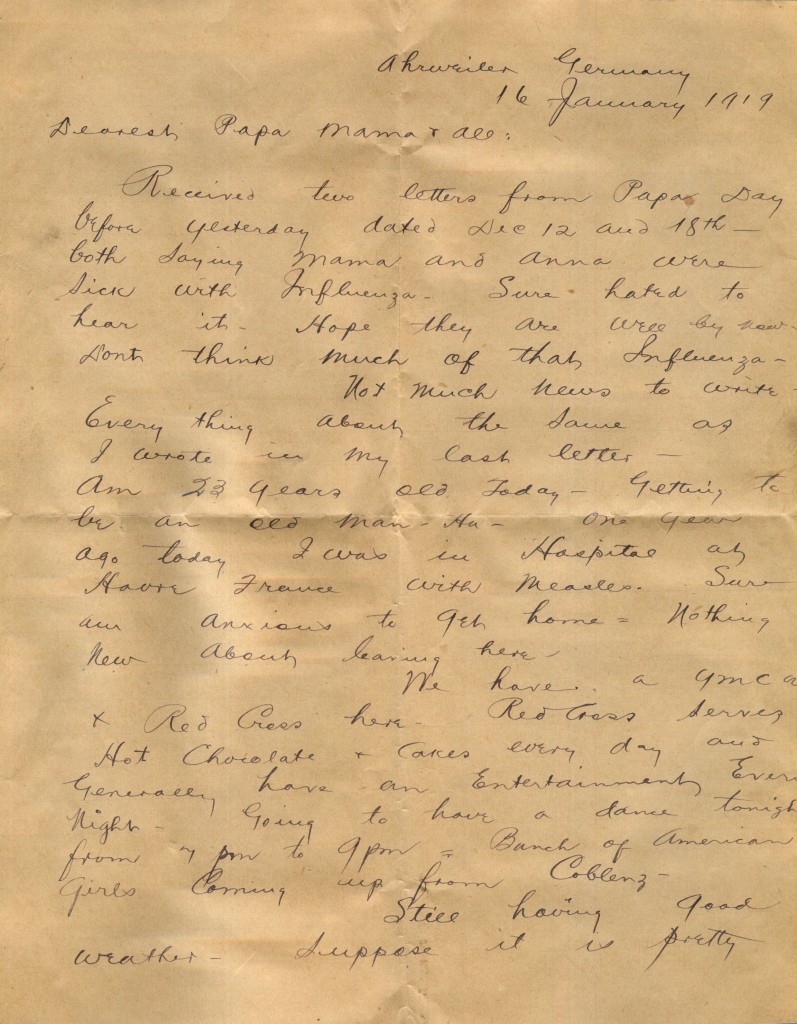 Ahrweiler Germany
16 January 1919
Dearest Papa Mama & all:
Received two letters from Papa Day
before yesterday dated Dec 12 and 18th—
both saying Mama and Anna were
sick with Influenza- Sure hated to
hear it- Hope they are well by now-
Dont think much of that Influenza-
Not much news to write-
Every thing about the same as
I wrote in my last letter—
Am 23 years old Today- Getting to
be an old man- Ha- One year
ago today I was in Hospital at
Havre France with Measles. Sure
am anxious to get home= Nothing
New About leaving here-
We have a YMCA
& Red Cross here- Red Cross serves
Hot Chocolate & Cakes every day and
Generally have an Entertainment Every
Night- Going to have a dance tonight
from 7 pm to 9pm = Bunch of American
Girls Coming up from Coblenz-
Still having good
weather- Suppose it is pretty